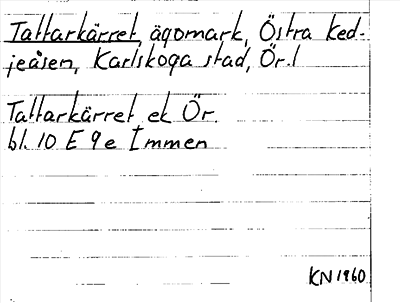 Tattarkärret, ägomark, Östra Ked-
jeåsen, Karlskoga stad, Ör. l
Tattarkärret ek Ör.
bl. 10 E 9 e Immen
KN 1960